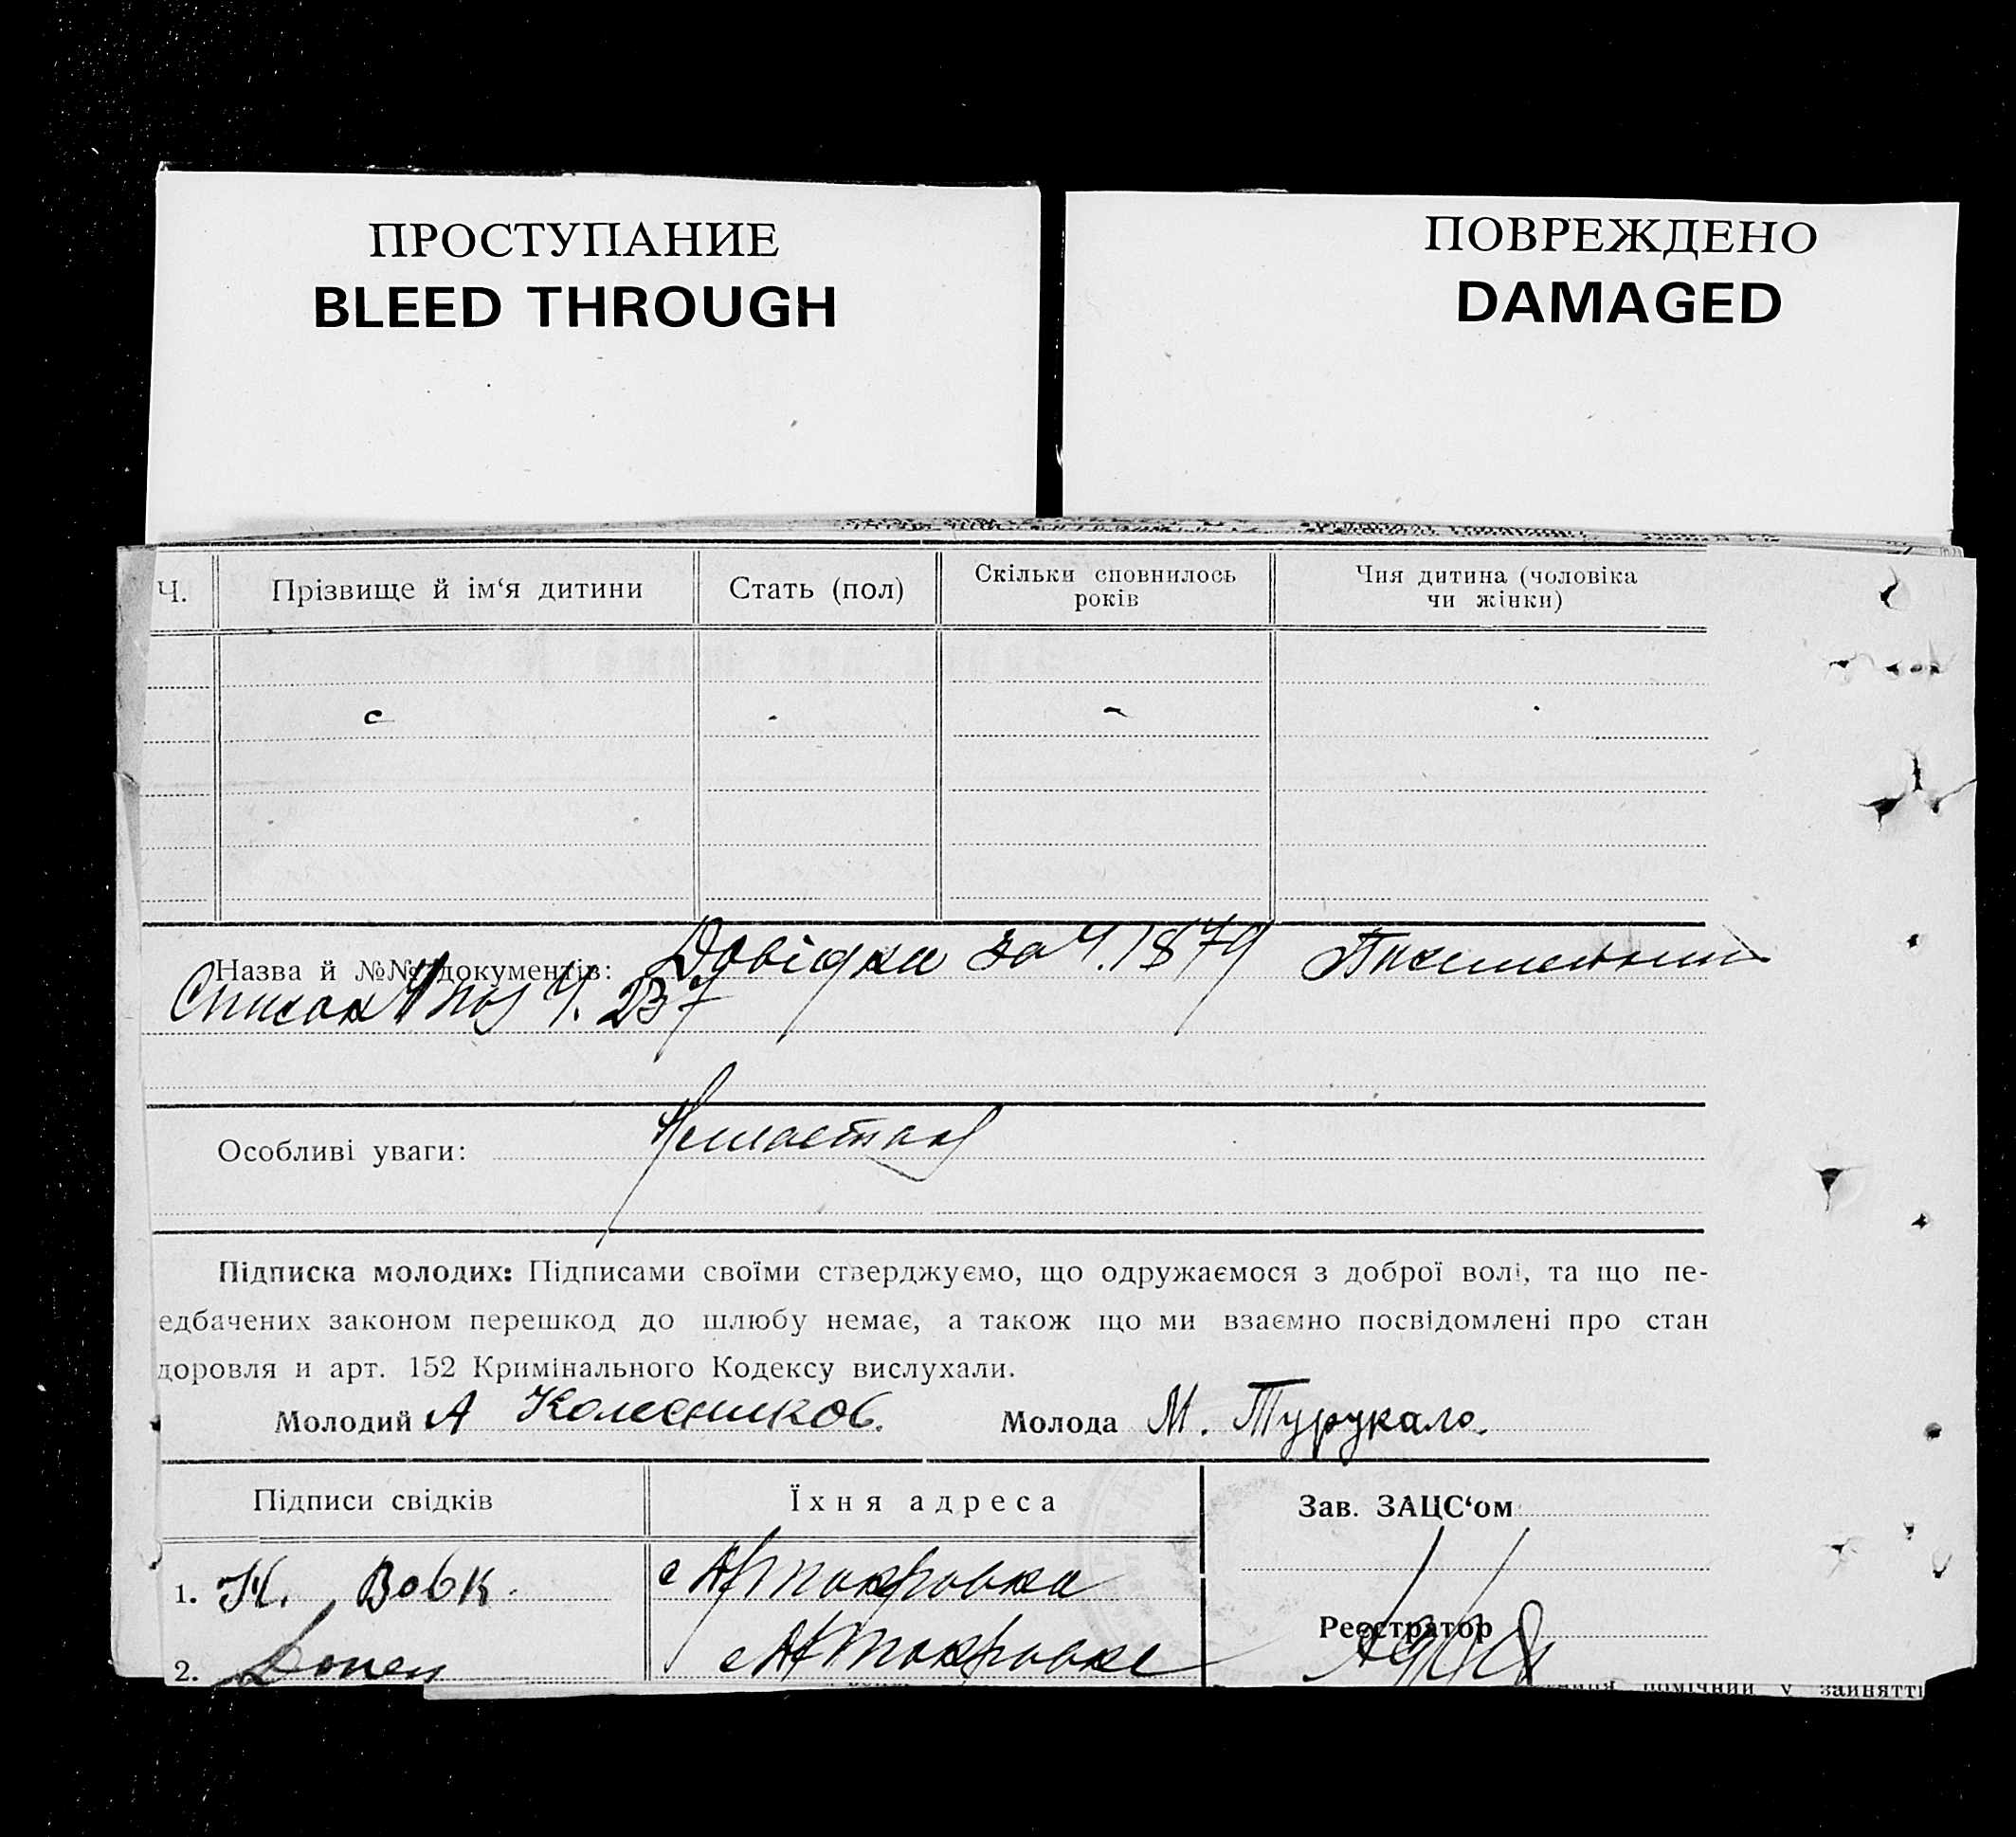 ПРОСТУПАНИЕ
BLEED THROUGH
ПОВРЕЖДЕНО
DAMAGED
Ч. Прізвище й ім‘я дитини Стать (пол) Скільки сповнилось років Чия дитина (чоловіка чи жінки)
Назва й №№ документів: Довідки за Ч. 1879
Список Ч. 237
Особливі уваги:
Підписка молодих: Підписами своїми стверджуємо, що одружаємося з доброї волі, та що пе-
едбачених законом перешкод до шлюбу немає, а також що ми взаємно посвідомлені про стан
доровля и арт. 152 Кримінального Кодексу вислухали.
Молодий А Колесников. Молода М. Турукало.
Підписи свідків Їхня адреса Зав. ЗАЦС‘ом
1. Н. Вовк.
Реєстратор
2.
помічний у зайнятті